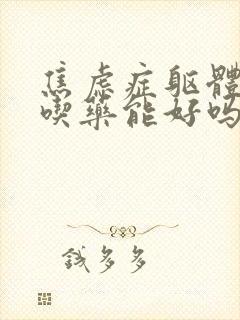 焦虑症躯體
喫藥能好吗
錢多多